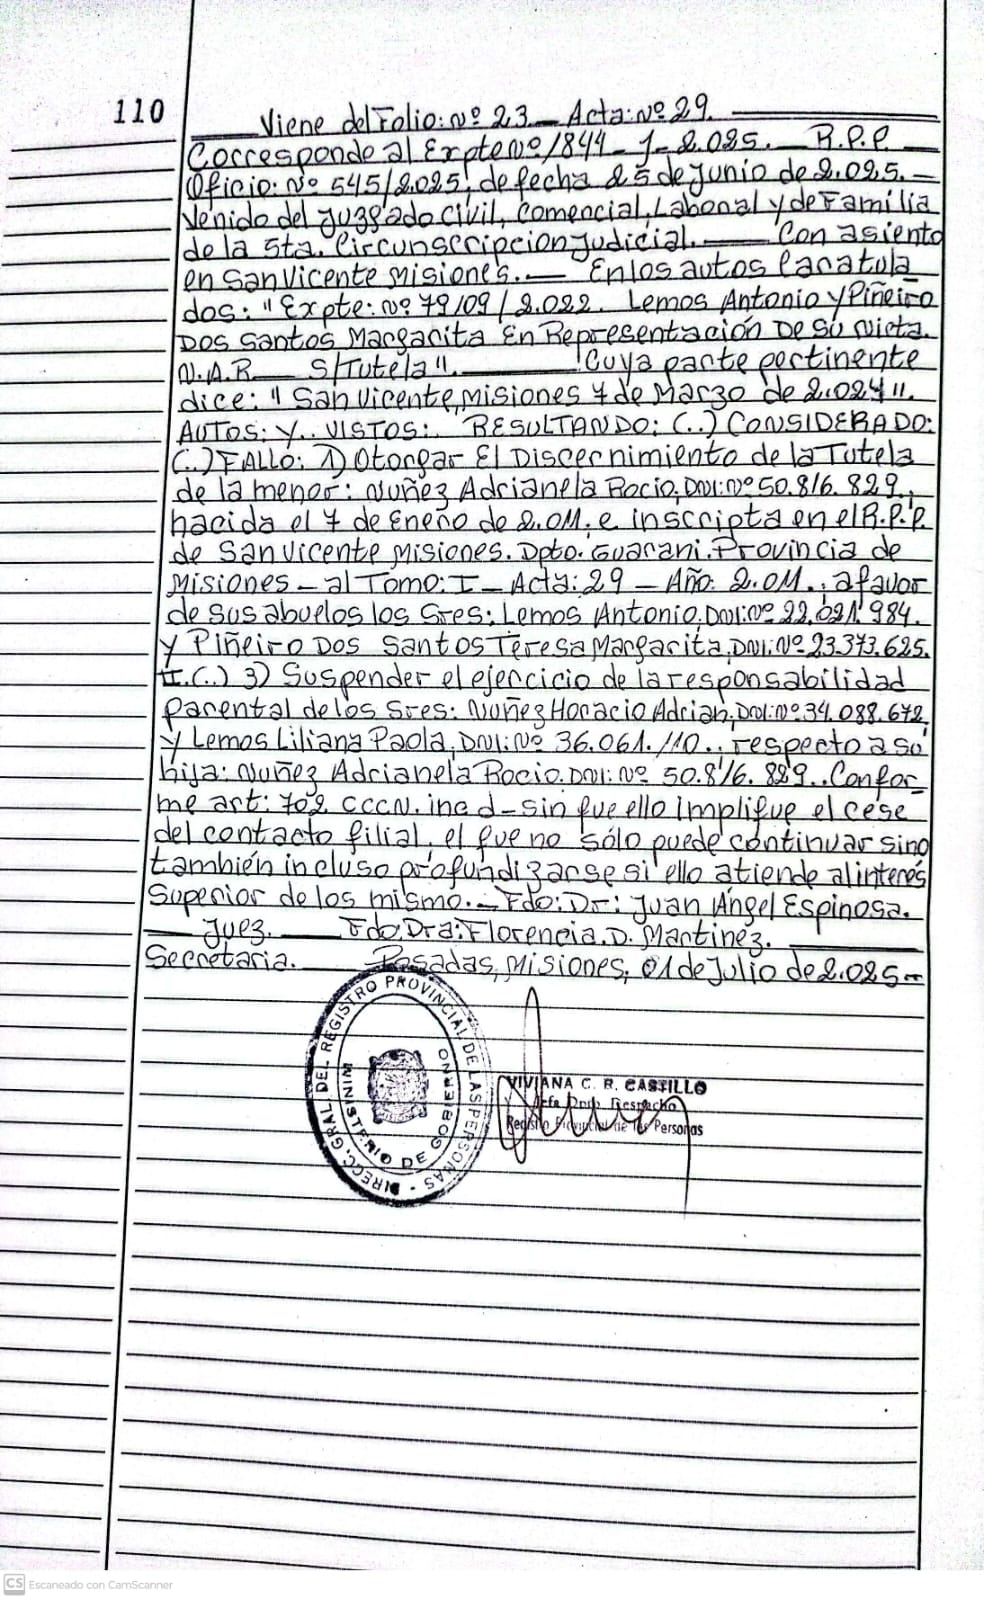 110
Viene del Folio: Nº 23 — Acta: Nº 29.
Corresponde al Expte Nº 1844 - J - 2.025. — R.P.P.
Oficio: Nº 545/2.025, de fecha 25 de Junio de 2.025. —
Venido del Juzgado Civil, Comercial, Laboral y de Familia
de la 5ta. Circunscripcion Judicial. — Con asiento
en San Vicente Misiones. — En los autos Caratula
dos: "Expte: Nº 79109/2.022. Lemos Antonio y Piñeiro
Dos Santos Margarita En Representación De Su Nieta.
N.A.R. — S/Tutela". — Cuya parte pertinente
dice: "San Vicente, Misiones 7 de Marzo de 2.024".
AUTOS: Y.. VISTOS:. RESULTANDO: (..) CONSIDERADO:
(..) FALLO: 1) Otorgar El Discernimiento de la Tutela
de la menor: Nuñez Adrianela Rocio, DNI: Nº 50.816.829,
nacida el 7 de Enero de 2.011. e inscripta en el R.P.P.
de San Vicente Misiones. Dpto. Guarani. Provincia de
Misiones — al Tomo: I — Acta: 29 — Año: 2.011.. a favor
de sus abuelos los Sres: Lemos Antonio, DNI: Nº 22.021.984.
y Piñeiro Dos Santos Teresa Margarita, DNI: Nº 23.373.625.
II.(..) 3) Suspender el ejercicio de la responsabilidad
parental de los Sres: Nuñez Horacio Adrian, DNI: Nº 34.088.672
y Lemos Liliana Paola, DNI: Nº 36.061.110.. respecto a su
hija: Nuñez Adrianela Rocio. DNI: Nº 50.816.829.. Confor-
me art: 702 CCCN. inc d - sin que ello implique el cese
del contacto filial, el que no sólo puede continuar sino
también incluso profundizarse si ello atiende al interés
Superior de los mismo. — Fdo: Dr: Juan Ángel Espinosa.
— Juez. — Fdo: Dra: Florencia. D. Martinez. —
Secretaria. — Posadas, Misiones, 01 de Julio de 2.025 —
DIRECC. GRAL. DEL REGISTRO PROVINCIAL DE LAS PERSONAS
MINISTERIO DE GOBIERNO
VIVIANA C. R. CASTILLO
Jefa Dpto. Despacho
Registro Provincial de las Personas
CS Escaneado con CamScanner